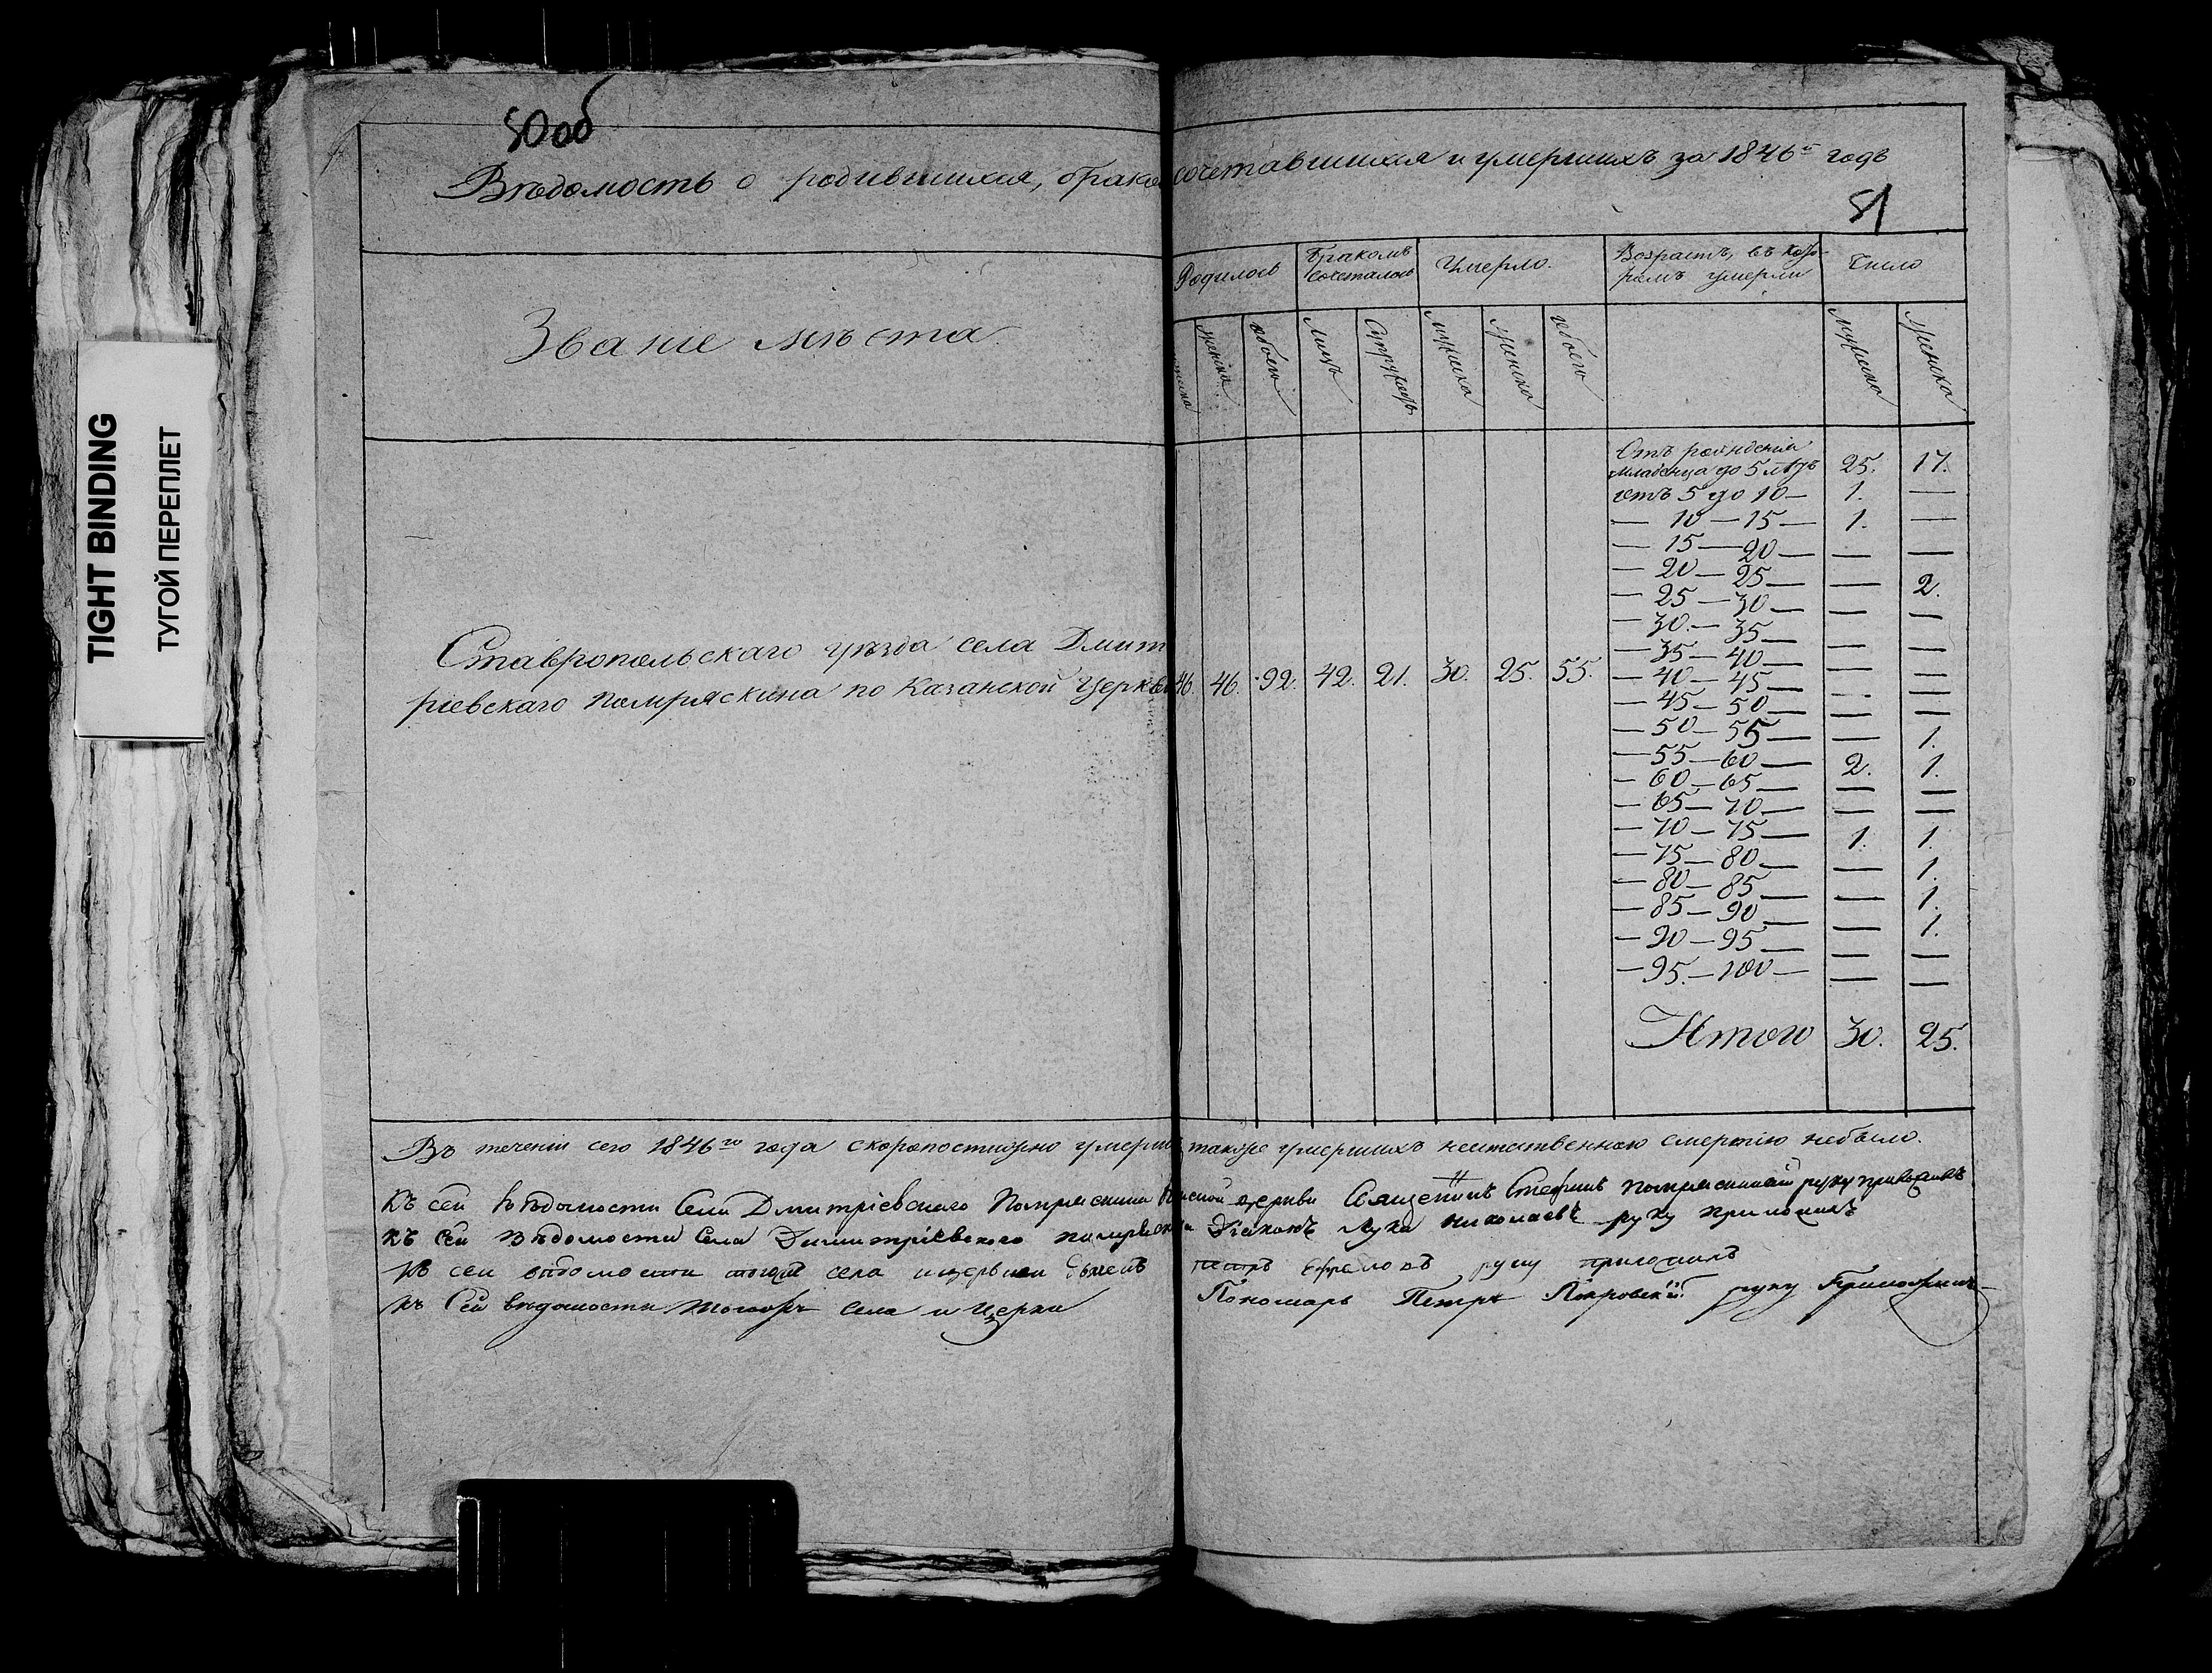 TIGHT BINDING
ТУГОЙ ПЕРЕПЛЕТ
80об
Вѣдомость о родившихся, бракосочетавшихся и умершихъ за 1846й годъ
81
Званіе мѣста
Родилось
Бракомъ сочеталось
Умерло.
Возрастъ, въ кото-
ромъ умерли
Число
женска обоего Лицъ Супружествъ мужеска женска обоего мужеска женска
Ставропольскаго уѣзда села Дмит
ріевскаго Помряскина по Казанской Церкви
46. 46. 92. 42. 21. 30. 25. 55.
Отъ рожденія
младенца до 5 лѣтъ 25. 17.
отъ 5 до 10— 1. —
— 10—15— 1. —
— 15—20— — —
— 20—25— — 2.
— 25—30— — —
— 30—35— — —
— 35—40— — —
— 40—45— — —
— 45—50— — —
— 50—55— — 1.
— 55—60— 2. 1.
— 60—65— — —
— 65—70— — —
— 70—75— 1. 1.
— 75—80— — 1.
— 80—85— — 1.
— 85—90— — 1.
— 90—95— — —
— 95—100— — —
Итого 30. 25.
Въ теченіи сего 1846го года скоропостижно умерши также умершихъ неестественною смертію небыло.
Къ сей вѣдомости Села Дмитріевскаго Помряскина церкви Священникъ Стефанъ Помряскинскій руку приложилъ
Къ сей вѣдомости Села Димитріевскаго Помряскина Діаконъ Лука Николаевъ руку приложилъ
Къ сей вѣдомости тогожъ села и церкви Петръ руку приложилъ
Къ Сей вѣдомости тогожъ села и Церкви Пономарь Петръ Покровскій руку Приложилъ